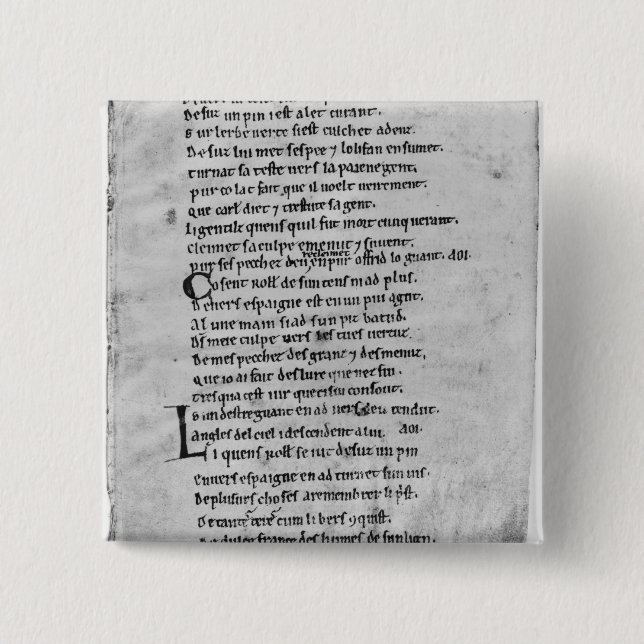 desuz un pin i est alet curant.
sur lerbe uerte siest culchet adenz.
desuz lui met sespee ⁊ lolifan ensumet.
turnat sa teste uers la paiene gent.
pur co lat fait que il uoelt ueirement.
que carl diet ⁊ trestute sa gent.
li gentilz quens quil fut mort cunquerant.
cleimet sa culpe e menut ⁊ suuent.
pur ses pecchez deu recleimet en puroffrid lo guant. aoi.
Co sent roll̓ de sun tens ni ad plus.
deuers espaigne est en un pui agut.
a lune main si ad sun piz batud.
ds̄ meie culpe uers les tues uertuz.
de mes pecchez des granz ⁊ des menuz.
que io ai fait des lure que nez fui.
tresqua cest iur que ci sui consout.
sun destre guant en ad uers deu tendut.
angles del ciel i descendent a lui. aoi.
Li quens roll̓ se iut desuz un pin
enuers espaigne en ad turnet sun uis.
de plusurs choses a remembrer li p̓st.
de tantes teres cum li bers ꝯquist.
de dulce france des humes de sun lign.